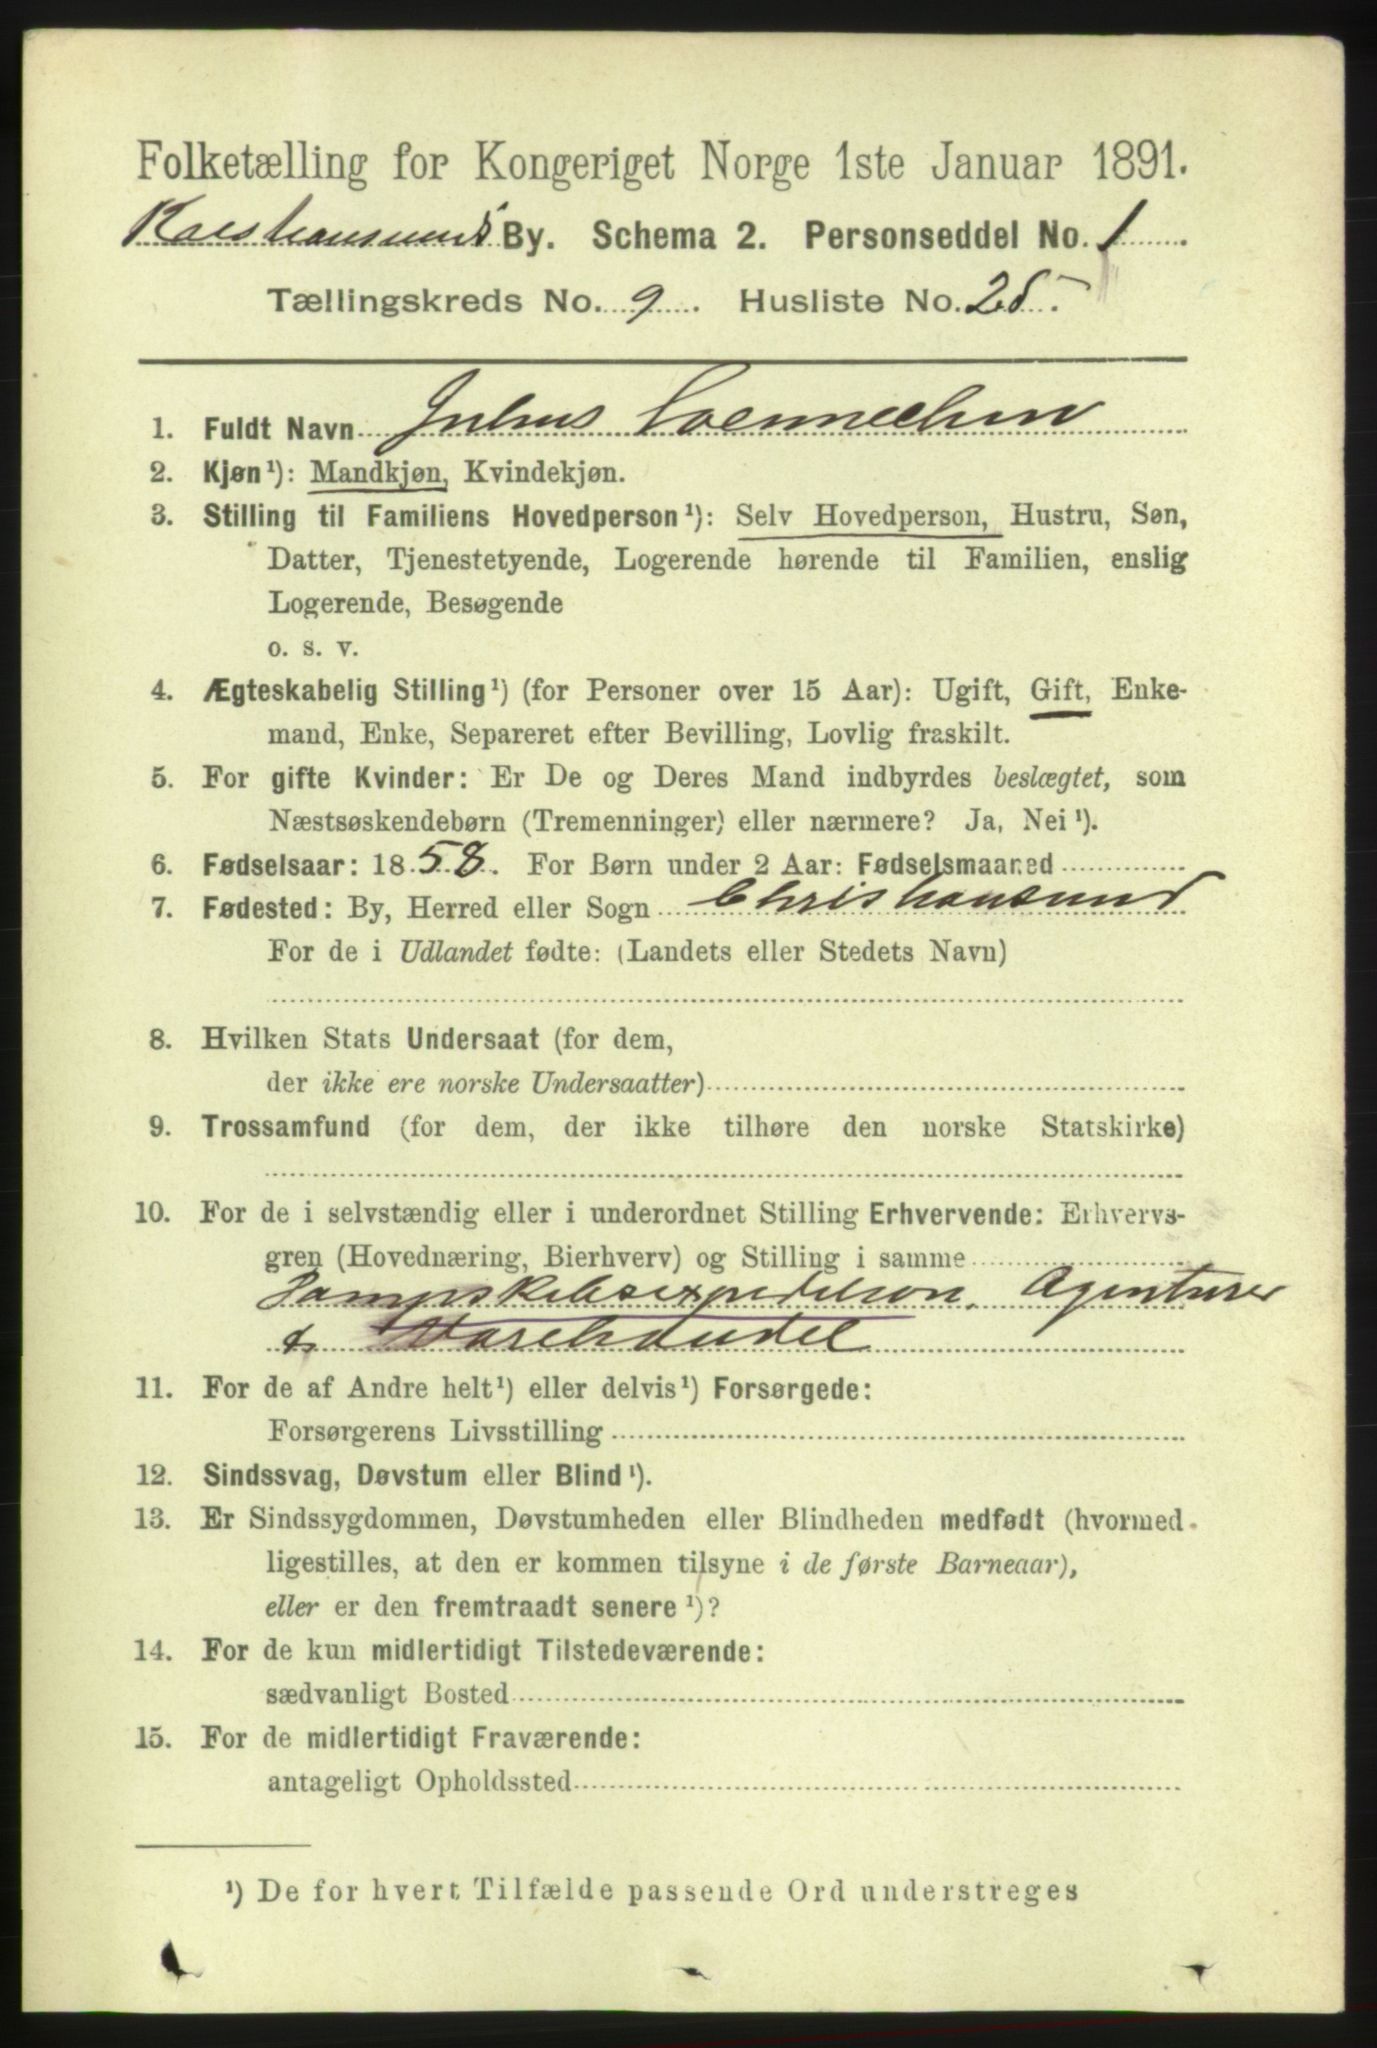 Folketælling for Kongeriget Norge 1ste Januar 1891.
By. Schema 2. Personseddel No. 1
Tællingskreds No. 9. Husliste No. 25.
1. Fuldt Navn Julius
2. Kjøn¹): Mandkjøn, Kvindekjøn.
3. Stilling til Familiens Hovedperson¹): Selv Hovedperson, Hustru, Søn,
Datter, Tjenestetyende, Logerende hørende til Familien, enslig
Logerende, Besøgende
o. s. v.
4. Ægteskabelig Stilling¹) (for Personer over 15 Aar): Ugift, Gift, Enke-
mand, Enke, Separeret efter Bevilling, Lovlig fraskilt.
5. For gifte Kvinder: Er De og Deres Mand indbyrdes beslægtet, som
Næstsøskendebørn (Tremenninger) eller nærmere? Ja, Nei¹).
6. Fødselsaar: 1858. For Børn under 2 Aar: Fødselsmaaned
7. Fødested: By, Herred eller Sogn Christiansund
For de i Udlandet fødte: (Landets eller Stedets Navn)
8. Hvilken Stats Undersaat (for dem,
der ikke ere norske Undersaatter)
9. Trossamfund (for dem, der ikke tilhøre den norske Statskirke)
10. For de i selvstændig eller i underordnet Stilling Erhvervende: Erhvervs-
gren (Hovednæring, Bierhverv) og Stilling i samme
Dampskibsexpedition, Agenturer
& Varehandel
11. For de af Andre helt¹) eller delvis¹) Forsørgede:
Forsørgerens Livsstilling
12. Sindssvag, Døvstum eller Blind¹).
13. Er Sindssygdommen, Døvstumheden eller Blindheden medfødt (hvormed
ligestilles, at den er kommen tilsyne i de første Barneaar),
eller er den fremtraadt senere¹)?
14. For de kun midlertidigt Tilstedeværende:
sædvanligt Bosted
15. For de midlertidigt Fraværende:
antageligt Opholdssted
¹) De for hvert Tilfælde passende Ord understreges